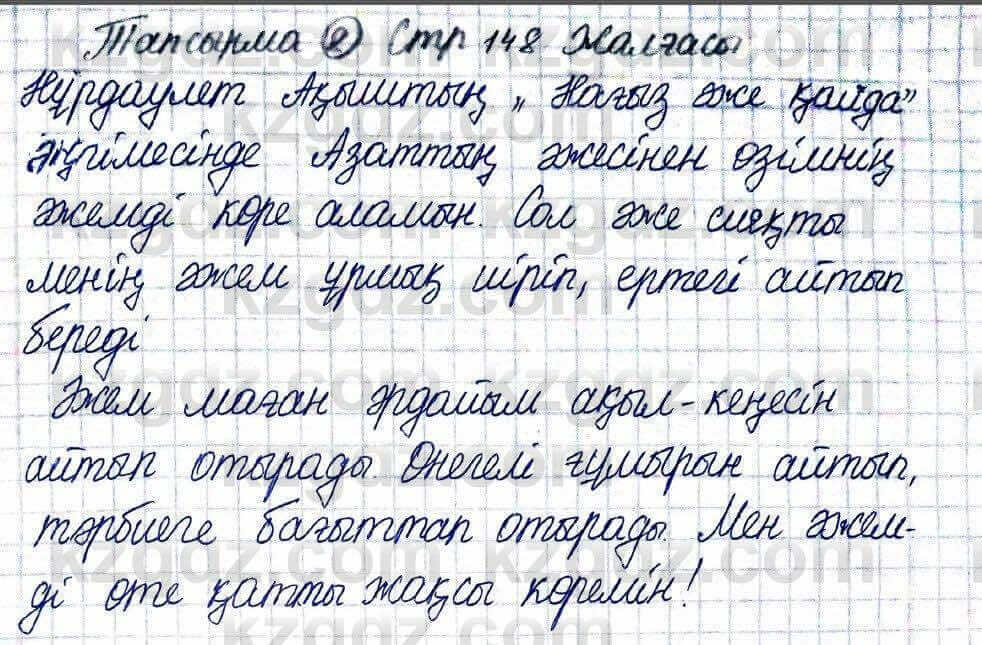 Тапсырма 2 Стр 148 Жалғасы
Нұрдәулет Ақыштың „Нағыз әже қайда"
әңгімесінде Азаттың әжесінен өзімнің
әжемді көре аламын. Сол әже сияқты
менің әжем ұршық иіріп, ертегі айтып
береді
Әжем маған әрдайым ақыл-кеңесін
айтып отырады. Өнегелі ғұмырын айтып,
тәрбиеге бағыттап отырады. Мен әжем-
ді өте қатты жақсы көремін!